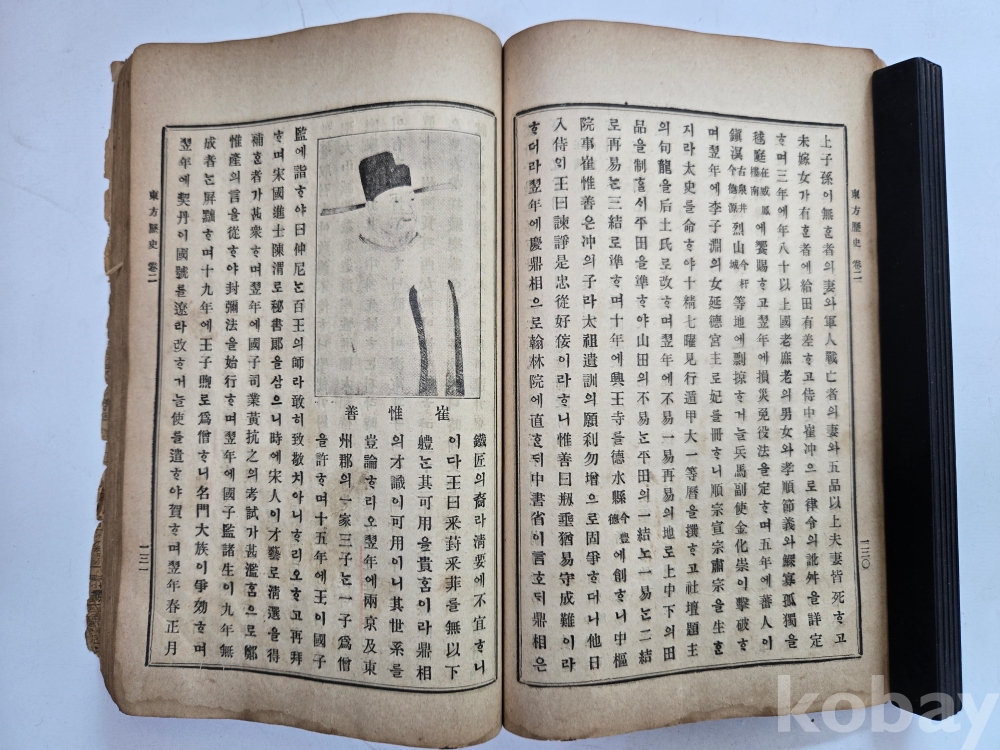 東方歷史 卷二
上子孫이無ᄒᆞᆫ者의妻와軍人戰亡者의妻와五品以上夫妻皆死ᄒᆞ고
未嫁女가有ᄒᆞᆫ者에給田有差ᄒᆞ고侍中崔冲으로律令의訛舛을詳定
ᄒᆞ며三年에年八十以上國老庶老의男女와孝順節義와鰥寡孤獨을
毬庭在威鳳樓南에饗賜ᄒᆞ고翌年에損災免役法을定ᄒᆞ며五年에蕃人이
鎭溟今德源右泉井烈山今杆城等地에剽掠ᄒᆞ거늘兵馬副使金化崇이擊破ᄒᆞ
며翌年에李子淵의女延德宮主로妃를冊ᄒᆞ니順宗宣宗肅宗을生ᄒᆞᆫ
지라太史를命ᄒᆞ야十精七曜見行遁甲太一等曆을撰ᄒᆞ고社壇題主
의句龍을后土氏로改ᄒᆞ며翌年에不易一易再易의地로上中下의田
品을制ᄒᆞᆯᄉᆡ平田을準ᄒᆞ야山田의不易는平田의一結노一易는二結
로再易는三結로準ᄒᆞ며十年에興王寺를德水縣今豐德에創ᄒᆞ니中樞
院事崔惟善은冲의子라太祖遺訓의願刹勿增으로固爭ᄒᆞ더니他日
入侍의王曰諫諍是忠從好侫이라ᄒᆞ니惟善曰刱垂猶易守成難이라
ᄒᆞ더라翌年에慶鼎相으로翰林院에直ᄒᆞᆫᄃᆡ中書省이言호ᄃᆡ鼎相은
一三〇
崔惟善
鐵匠의裔라淸要에不宜ᄒᆞ니
이다王曰釆葑釆菲를無以下
軆는其可用을貴홈이라鼎相
의才識이可用이니其世系를
豈論ᄒᆞ리오翌年에兩京及東
州郡의一家三子는一子爲僧
을許ᄒᆞ며十五年에王이國子
監에詣ᄒᆞ야曰仲尼는百王의師라敢히致敬치아니ᄒᆞ리오ᄒᆞ고再拜
ᄒᆞ며宋國進士陳渭로秘書郞을삼으니時에宋人이才藝로淸選을得
補ᄒᆞᆫ者가甚衆ᄒᆞ며翌年에國子司業黃抗之의考試가甚濫홈으로鄭
惟產의言을從ᄒᆞ야封彌法을始行ᄒᆞ며翌年에國子監諸生이九年無
成者는屛黜ᄒᆞ며十九年에王子煦로爲僧ᄒᆞ니名門大族이爭効ᄒᆞ며
翌年에契丹이國號를遼라改ᄒᆞ거늘使를遣ᄒᆞ야賀ᄒᆞ며翌年春正月
東方歷史 卷二
一三一
kobay